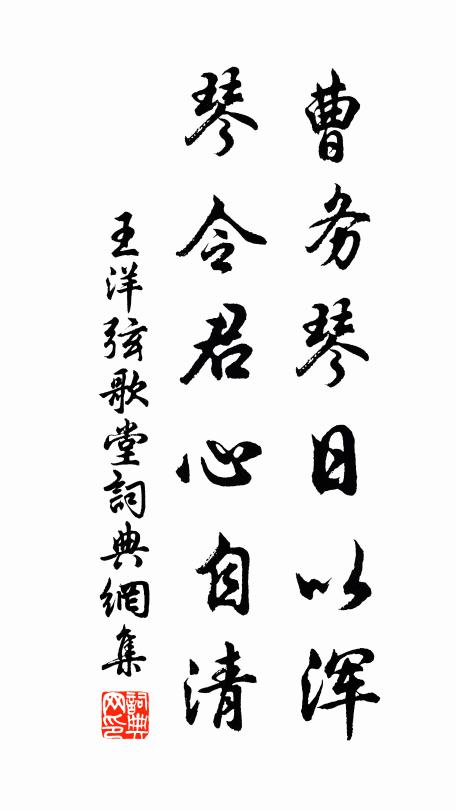 曹务琴日以浑
琴令君心自清
王洋弦歌堂詞典網集
詞典网印